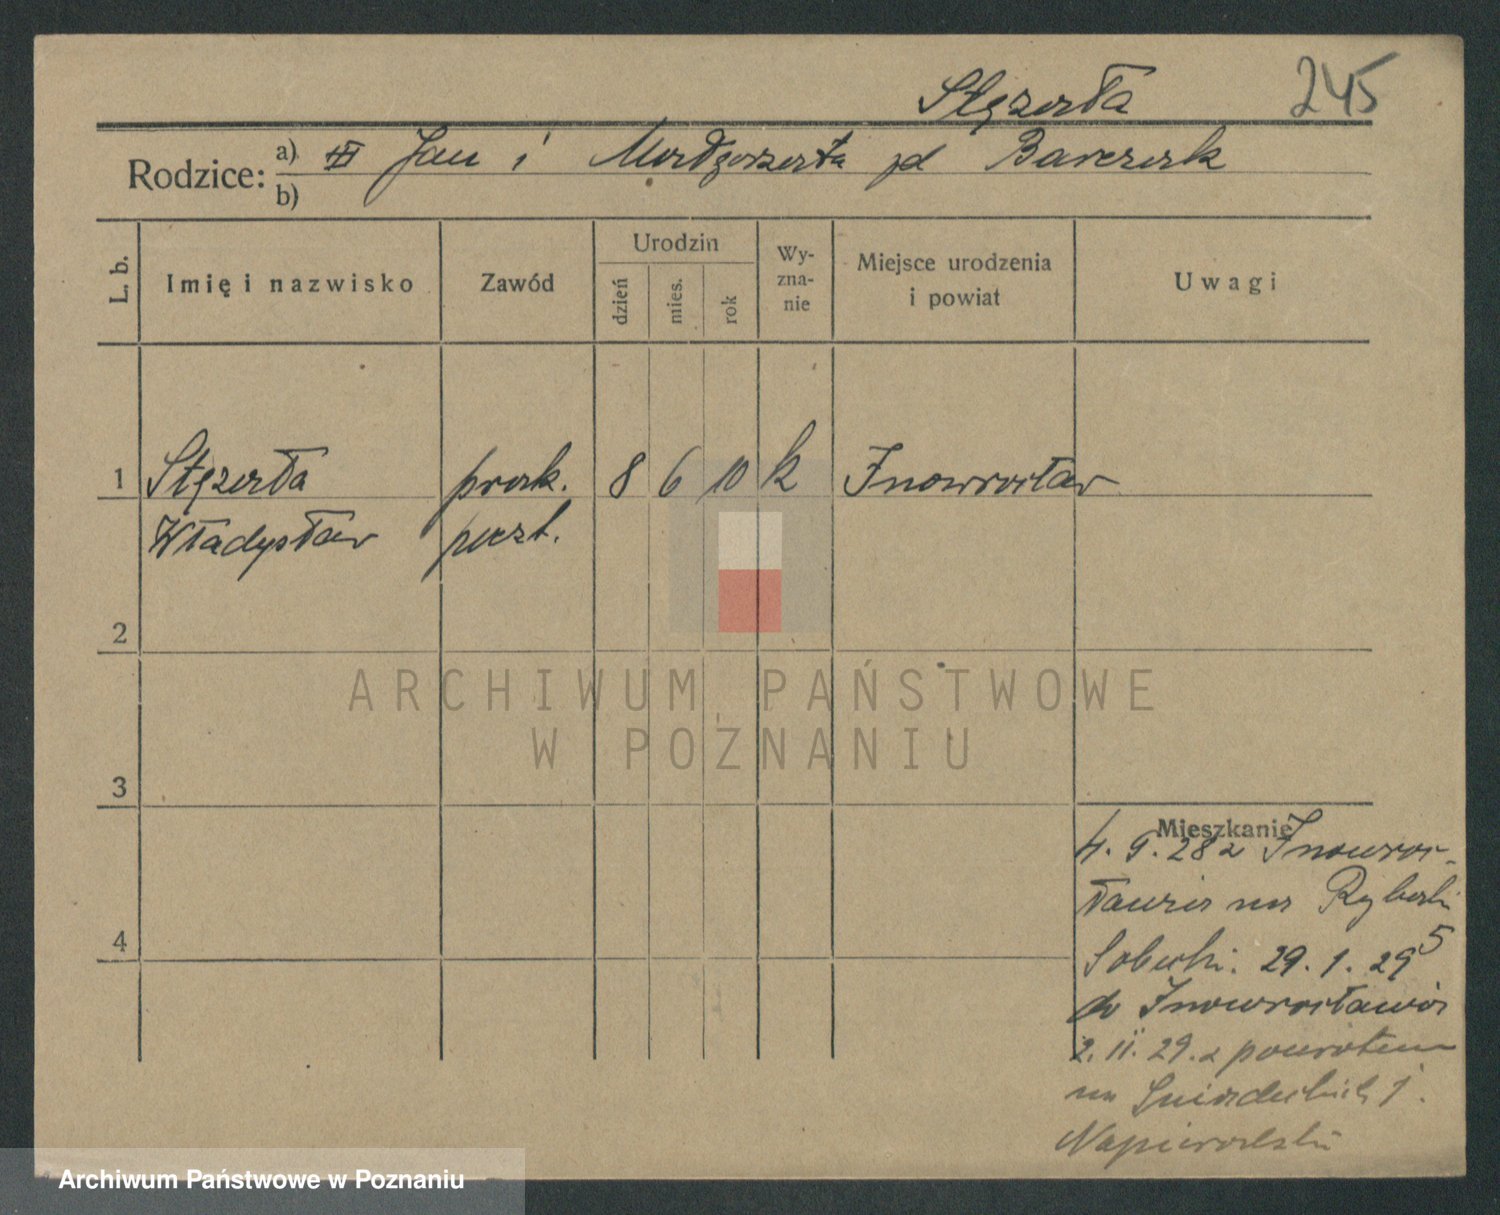 Stęzała
245
Rodzice:
a) Jan i Małgorzata zd Barczak
b)
L. b.
Imię i nazwisko
Zawód
Urodzin
dzień
mies.
rok
Wy-
zna-
nie
Miejsce urodzenia
i powiat
Uwagi
1 Stęzała prak. 8 6 10 k Inowrocław
Władysław poczt.
2
3
4
Mieszkanie
4. 9. 28 z Inowroc-
ławia na Rybaki
5
Sobecki. 29. 1. 29
do Inowrocławia
2. II. 29. z powrotem
na Śniadeckich 1.
ARCHIWUM PAŃSTWOWE
W POZNANIU
Archiwum Państwowe w Poznaniu